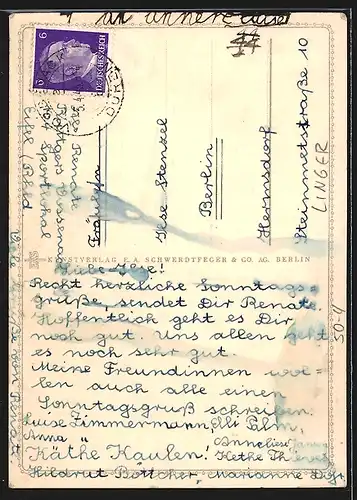 an unnere Ilse!
6
DEUTSCHES REICH
6
DÜREN
Renate
Röttgers
Eifel
Fräulein
Ilse Stenzel
Berlin
Hermsdorf
Steinmetzstraße 10
LINGER
KUNSTVERLAG E. A. SCHWERDTFEGER & CO. AG. BERLIN
Liebe Ilse!
Recht herzliche Sonntags-
grüße sendet Dir Renate.
Hoffentlich geht es Dir
noch gut. Uns allen geht
es noch sehr gut.
Meine Freundinnen wol-
len auch alle einen
Sonntagsgruß schreiben.
Luise Zimmermann, Elli Palm,
Anna "
Anneliese Jansen
Käthe Kaulen! Kethe
Hildrut Böttcher, Marianne
Viele Grüße von Renate
50-4